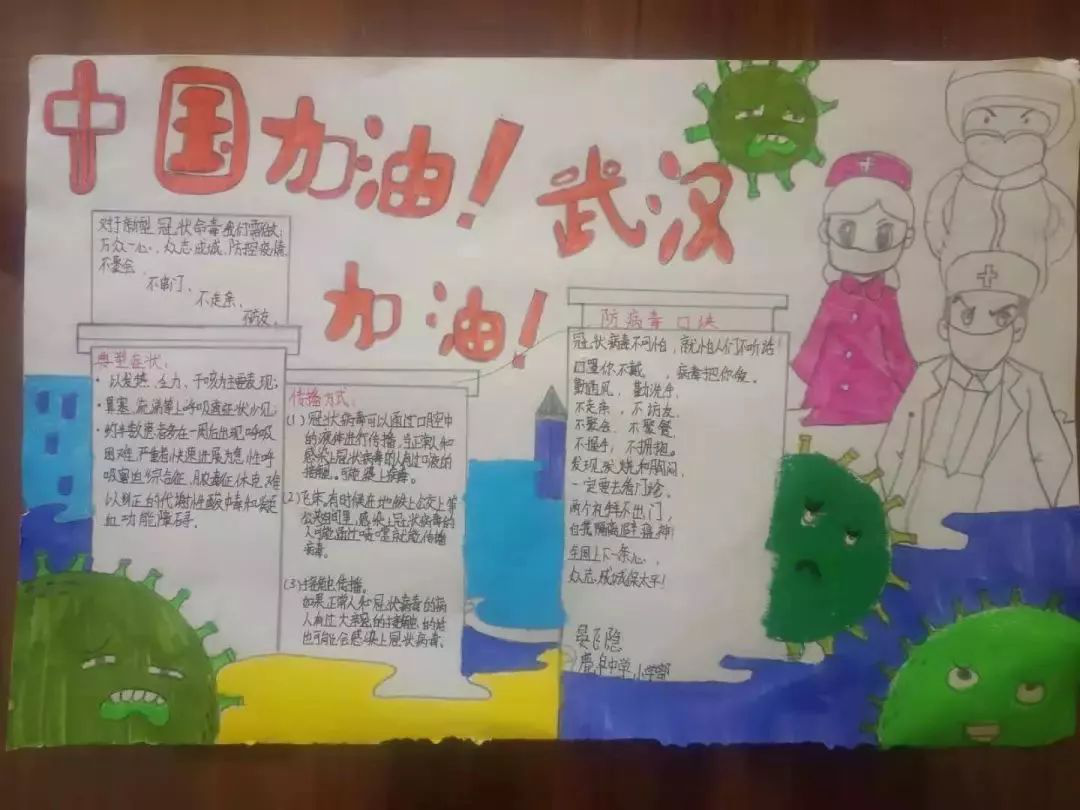 中国加油！武汉
加油！
对于新型冠状病毒我们需做：
万众一心、众志成城、防控疫情、
不聚会、
不串门、
不走亲、
不访友。
典型症状：
• 以发热、乏力、干咳为主要表现；
• 鼻塞、流涕等上呼吸道症状少见；
• 约半数患者多在一周后出现呼吸
困难,严重者快速进展为急性呼
吸窘迫综合征、脓毒症休克、难
以纠正的代谢性酸中毒和凝
血功能障碍。
传播方式：
(1) 冠状病毒可以通过口腔中
的液体进行传播,当正常人和
感染上冠状病毒的人有过口液的
接触。可能染上病毒。
(2) 飞沫。有时候在地铁上公交上等
公共时间里,感染上冠状病毒的
人可能通过 传播
病毒。
(3) 接触传播。
如果正常人和冠状病毒的病
人有过大亲密的接触的话
也可能会感染上冠状病毒。
防病毒口诀
冠状病毒不可怕，就怕人们不听话！
口罩你不戴，病毒把你爱。
勤通风，勤洗手，
不走亲，不访友。
不聚会、不聚餐，
不握手，不拥抱。
发现发烧和胸闷，
一定要去看门诊。
两个礼拜不出门，
自我隔离 瘟神！
全国上下一条心，
众志成城保太平！
晏飞隐
鹿阜中学小学部